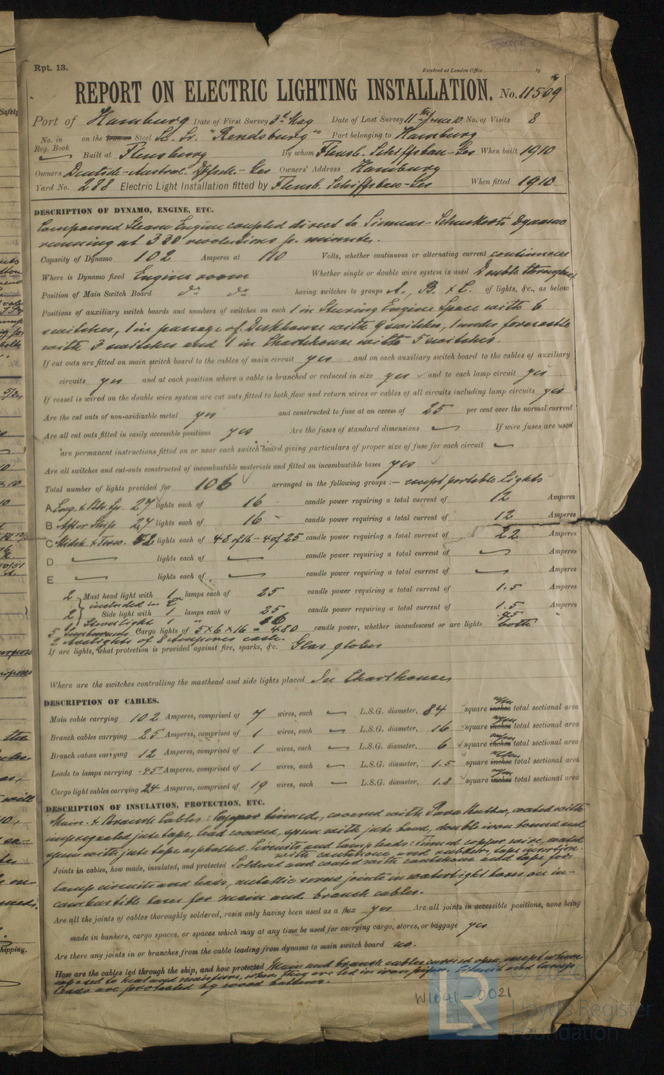 Rpt. 13.
Received at London Office
REPORT ON ELECTRIC LIGHTING INSTALLATION. No. 11509
Port of Hamburg Date of First Survey 3d May Date of Last Survey 11th June 10 No. of Visits 8
No. in on the Steel Sc. Sr. "Rendsburg" Port belonging to Hamburg
Reg. Book Built at Flensburg By whom Flensb. Schiffsbau-Ges When built 1910
Owners Deutsch-Austral. Dpfsch.-Ges Owners' Address Hamburg
Yard No. 288 Electric Light Installation fitted by Flensb. Schiffsbau-Ges When fitted 1910
DESCRIPTION OF DYNAMO, ENGINE, ETC.
Compound Steam Engine coupled direct to Siemens-Schuckert Dynamo
running at 320 revolutions p. minute.
Capacity of Dynamo 102 Amperes at 110 Volts, whether continuous or alternating current continuous
Where is Dynamo fixed Engine room Whether single or double wire system is used double throughout
Position of Main Switch Board do do having switches to groups A, B, & C. of lights, &c., as below
Positions of auxiliary switch boards and numbers of switches on each 1 in Steering Engine Space with 6
switches, 1 in passage of Deckhouse with 9 switches, 1 under forecastle
with 3 switches and 1 in Charthouse with 5 switches.
If cut outs are fitted on main switch board to the cables of main circuit yes and on each auxiliary switch board to the cables of auxiliary
circuits yes and at each position where a cable is branched or reduced in size yes and to each lamp circuit yes
If vessel is wired on the double wire system are cut outs fitted to both flow and return wires or cables of all circuits including lamp circuits yes
Are the cut outs of non-oxidizable metal yes and constructed to fuse at an excess of 25 per cent over the normal current
Are all cut outs fitted in easily accessible positions yes Are the fuses of standard dimensions If wire fuses are used
are permanent instructions fitted on or near each switch board giving particulars of proper size of fuse for each circuit
Are all switches and cut-outs constructed of incombustible materials and fitted on incombustible bases yes
Total number of lights provided for 106 arranged in the following groups :- except portable lights
A Eng. & Blr. Sp. 27 lights each of 16 candle power requiring a total current of 12 Amperes
B After Ship 27 lights each of 16 candle power requiring a total current of 12 Amperes
C Midsh. & Forec. 52 lights each of 48 of 16 - 4 of 25 candle power requiring a total current of 22 Amperes
D lights each of candle power requiring a total current of Amperes
E lights each of candle power requiring a total current of Amperes
2 Mast head light with 1 lamps each of 25 candle power requiring a total current of 1.5 Amperes
included in C
2 Side light with 1 lamps each of 25 candle power requiring a total current of 1.5 Amperes
5 Cargo lights of 5 x 6 x 16 = 480 candle power, whether incandescent or arc lights both
2 Arclights of 8 Amperes each
If arc lights, what protection is provided against fire, sparks, &c. Glas globes
Where are the switches controlling the masthead and side lights placed In Charthouse
DESCRIPTION OF CABLES.
Main cable carrying 102 Amperes, comprised of 7 wires, each L.S.G. diameter, 84 square total sectional area
Branch cables carrying 25 Amperes, comprised of 1 wires, each L.S.G. diameter, 16 square total sectional area
Branch cables carrying 12 Amperes, comprised of 1 wires, each L.S.G. diameter, 6 square total sectional area
Leads to lamps carrying .45 Amperes, comprised of 1 wires, each L.S.G. diameter, 1.5 square total sectional area
Cargo light cables carrying 24 Amperes, comprised of 19 wires, each L.S.G. diameter, 1.8 square total sectional area
DESCRIPTION OF INSULATION, PROTECTION, ETC.
Main & Branch Cables: Copper tinned, covered with Para Rubber, coated with
impregnated jute tape, lead covered, spun with jute band, double iron bound and
spun with jute tape asphalted. Circuits and lamp leads: tinned copper wire,
Joints in cables, how made, insulated, and protected Soldered and coated with caoutchouc and tape for
lamp circuits and leads, metallic screw joints in watertight boxes on in-
combustible bases for main and branch cables.
Are all the joints of cables thoroughly soldered, resin only having been used as a flux yes Are all joints in accessible positions, none being
made in bunkers, cargo spaces, or spaces which may at any time be used for carrying cargo, stores, or baggage yes
Are there any joints in or branches from the cable leading from dynamo to main switch board no.
How are the cables led through the ship, and how protected Main and branch cables carried open, except where
exposed to heat and moisture, when they are led in iron pipes. Circuit and lamp
leads are protected by wood battens.
W1041-0021
LR Lloyd's Register
Foundation